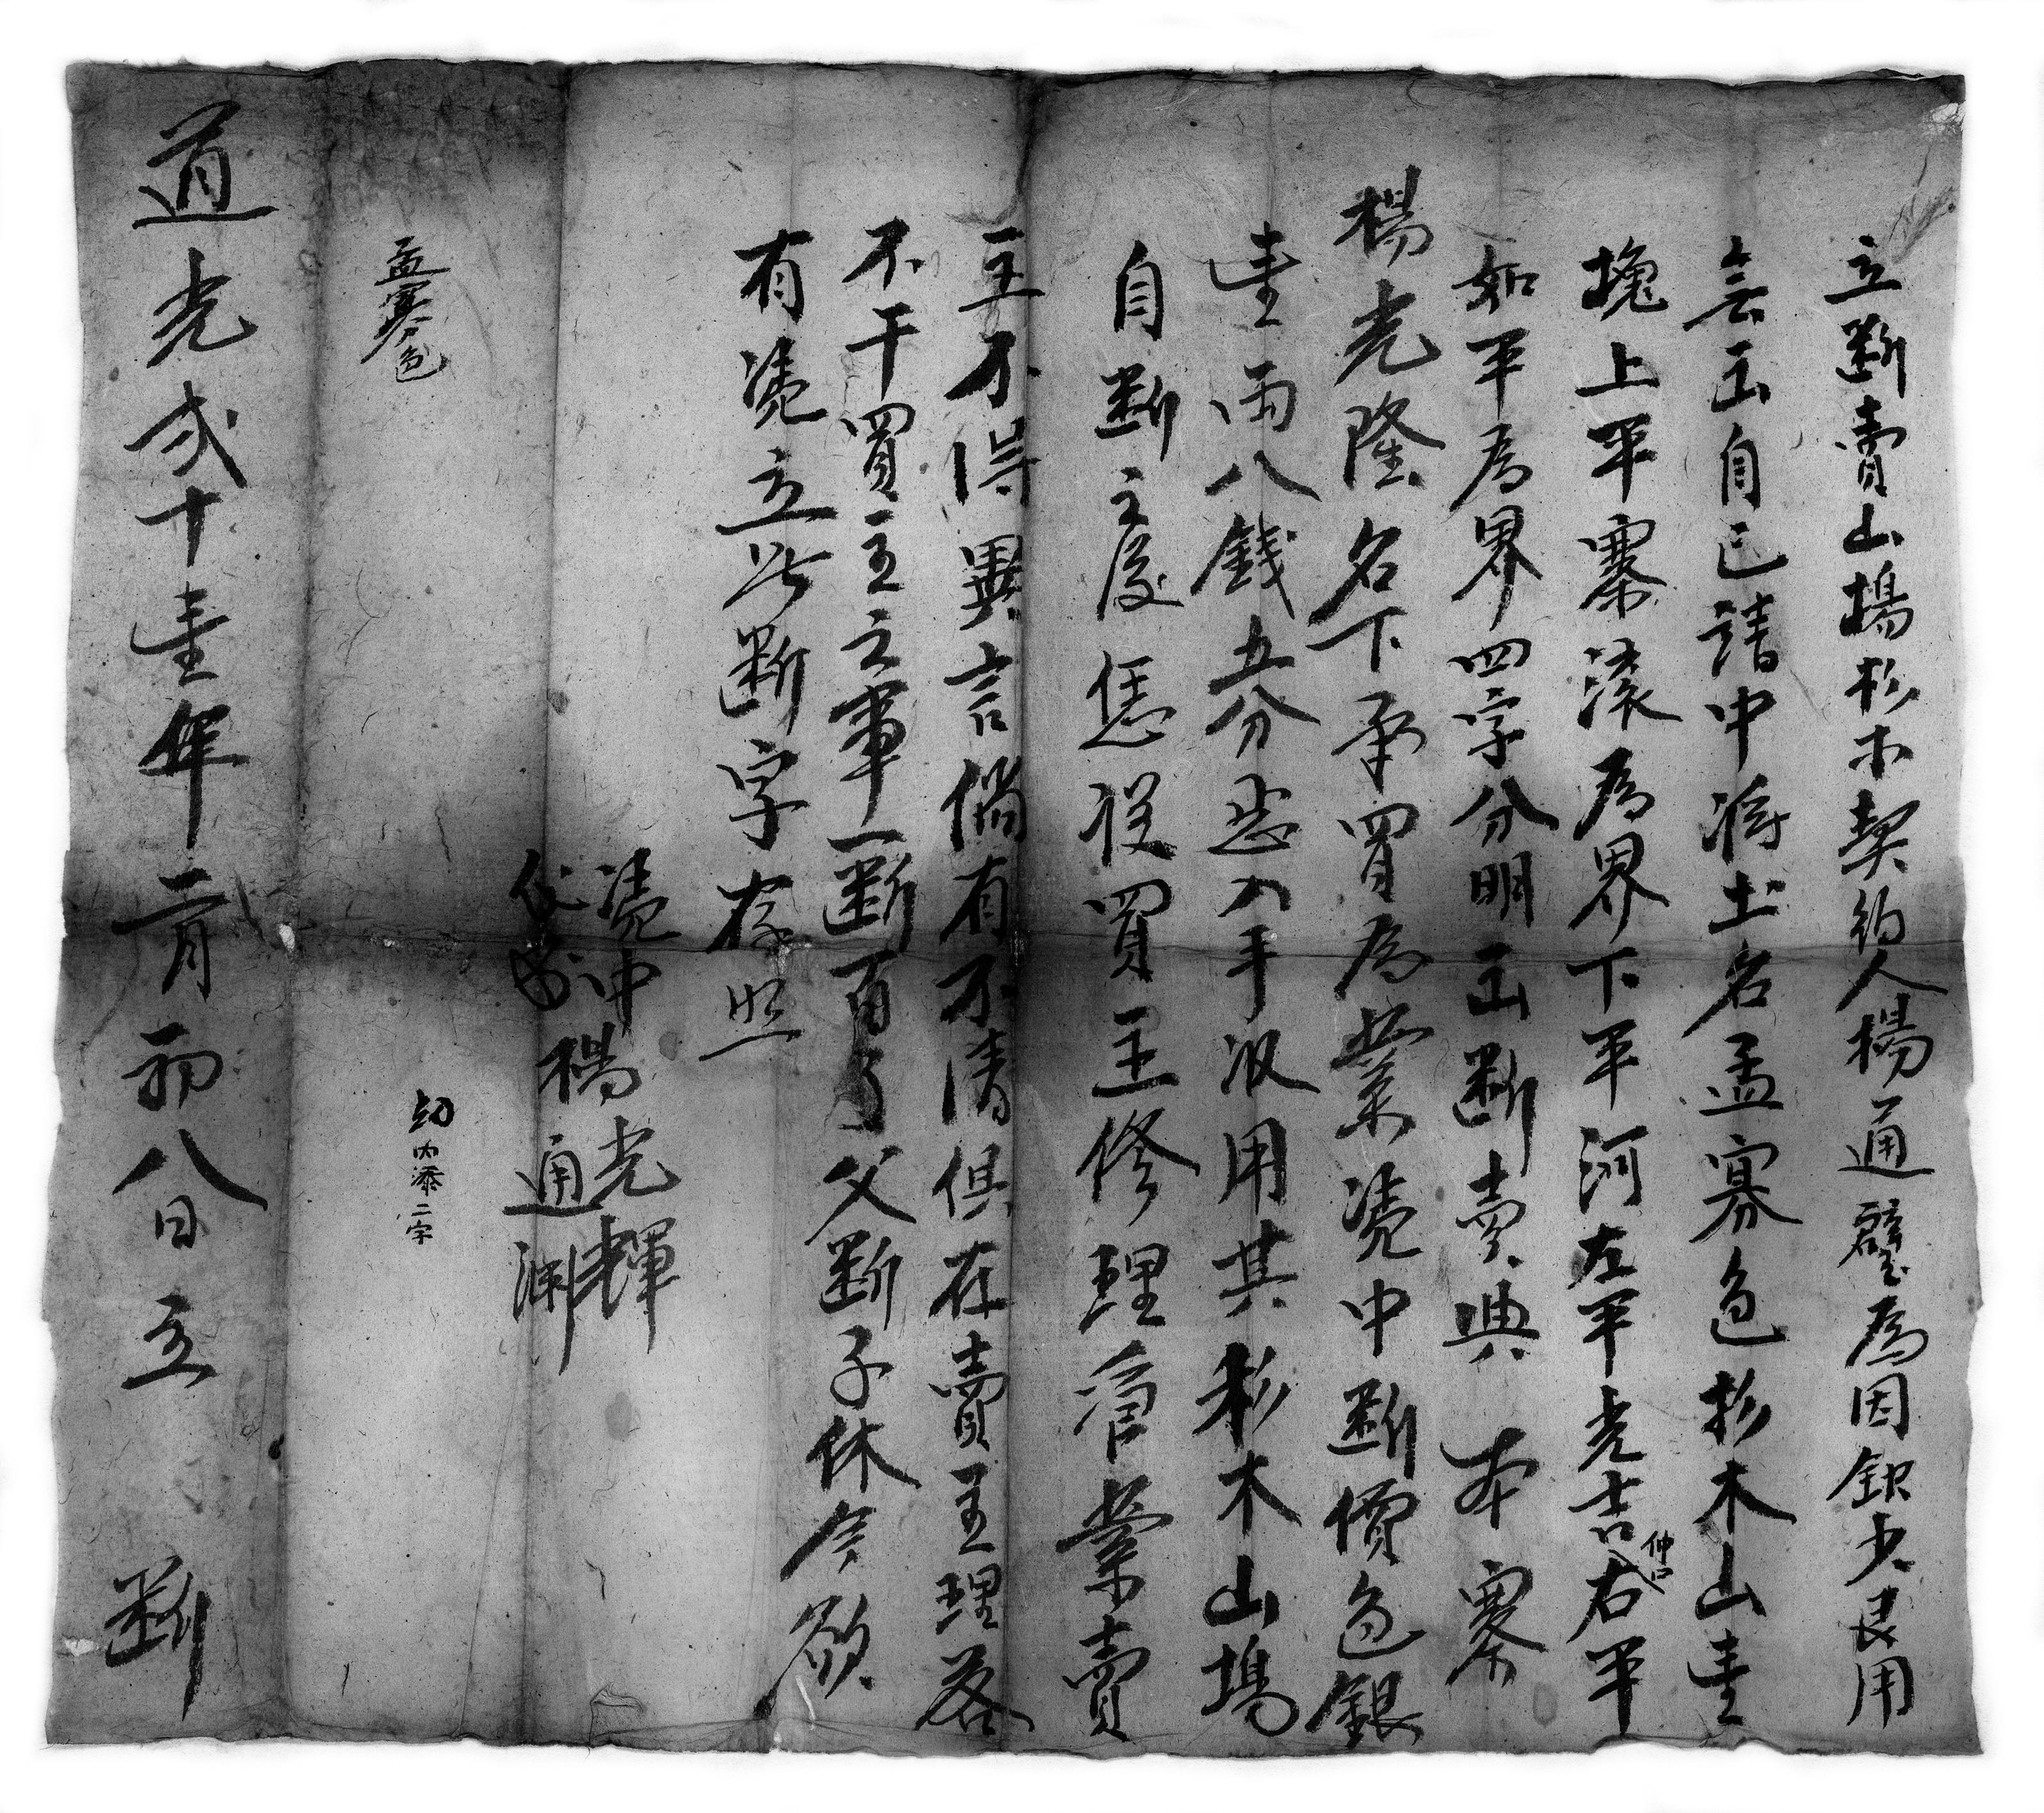 立斷賣山場杉木契約人楊通璧為因銀少艮用
無出自己請中將土名孟寡包杉木山壹
挽上平寨滚為界下平河左平光吉仲口右平
如平為界四字分明出断賣與本寨
楊光隆名下承買為業凴中断價色銀
壹両八錢五分忍入手收用其杉木山塲
自断之後恁從買主修理管業賣
主不得異言倘有不清俱在賣主理落
不干買主之事一断百了父断子休今欲
有凴立此断字存照
凴中楊光輝
代筆楊通渊
契内添二字
孟寨包
道光貳十壹年二月初八日立断